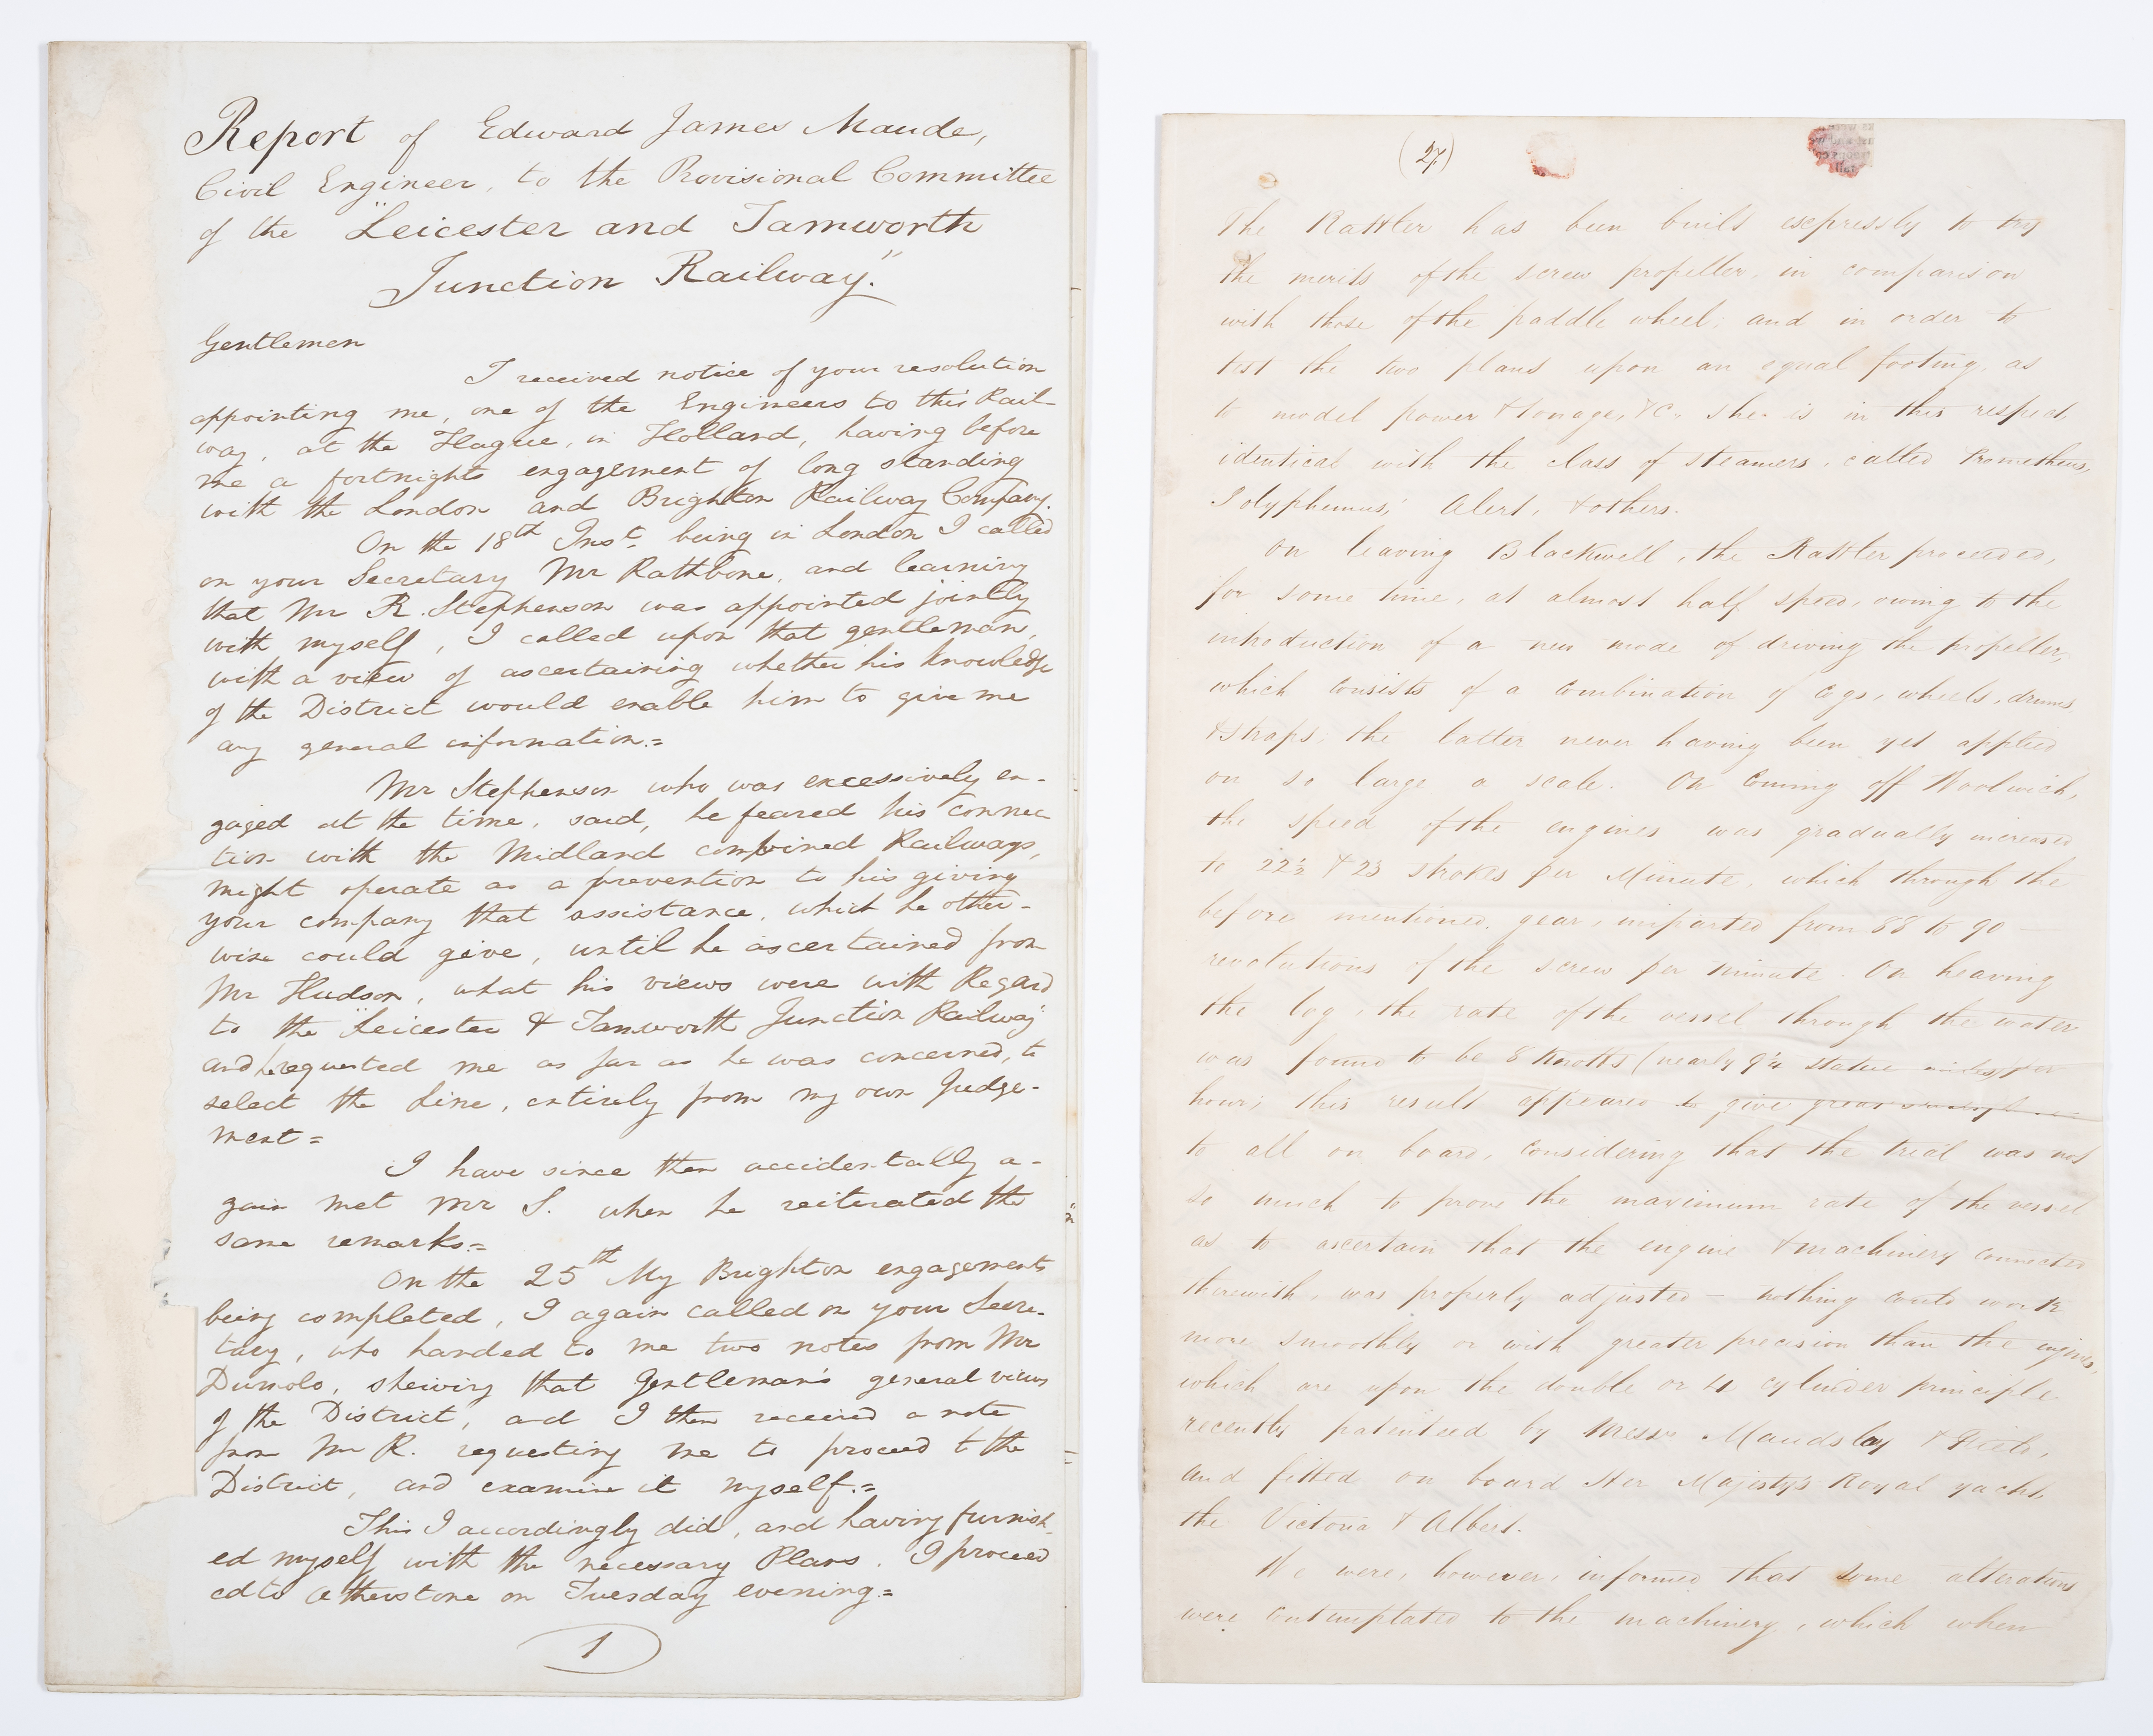 Report of Edward James Maude,
Civil Engineer, to the Provisional Committee
of the "Leicester and Tamworth
Junction Railway."
Gentlemen
I received notice of your resolution
appointing me, one of the Engineers to this Rail-
way, at the Hague, in Holland, having before
me a fortnights engagement of long standing
with the London and Brighton Railway Company.
On the 18th Inst. being in London I called
on your Secretary Mr Rathbone, and learning
that Mr R. Stephenson was appointed jointly
with myself, I called upon that gentleman,
with a view of ascertaining whether his knowledge
of the District would enable him to give me
any general information.=
Mr Stephenson who was excessively en-
gaged at the time, said, he feared his connec
tion with the Midland combined Railways,
might operate as a prevention to his giving
your company that assistance, which he other-
wise could give, until he ascertained from
Mr Hudson, what his views were with Regard
to the "Leicester & Tamworth Junction Railway"
and he requested me as far as he was concerned, to
select the Line, entirely from my own Judge-
ment=
I have since then accidentally a-
gain met Mr S. when he reiterated the
same remarks.=
On the 25th My Brighton engagements
being completed, I again called on your Secre-
tary, who handed to me two notes from Mr
Dumolo, shewing that Gentleman's general views
of the District, and I then received a note
from Mr R. requesting me to proceed to the
District, and examine it myself.=
This I accordingly did, and having furnish-
ed myself with the necessary Plans. I proceed
ed to Atherstone on Tuesday evening.=
1
(27)
The Rattler has been built expressly to try
the merits of the screw propeller, in comparison
with those of the paddle wheel; and in order to
test the two plans upon an equal footing, as
to model power & tonage, &c. she is in this respect,
identical with the class of steamers, called Prometheus,
Polyphemus, Alert, & others.
On leaving Blackwell, the Rattler proceeded,
for some time, at almost half speed, owing to the
introduction of a new mode of driving the propeller,
which consists of a combination of cogs, wheels, drums
& straps; the latter never having been yet applied
on so large a scale. On coming off Woolwich,
the speed of the engines was gradually increased
to 22½ & 23 strokes per Minute, which through the
before mentioned gear, imparted from 88 to 90 —
revolutions of the screw per minute. On heaving
the log, the rate of the vessel through the water
was found to be 8 Knotts (nearly 9¼ statue miles) per
hour; this result appeared to give great
to all on board, considering that the trial was not
so much to prove the maximum rate of the vessel
as to ascertain that the engine & machinery connected
therewith, was properly adjusted — nothing could work
more smoothly or with greater precision than the engines,
which are upon the double or 4 cylinder principle
recently patented by Messrs Maudslay & Field,
and fitted on board Her Majesty's Royal yacht,
the Victoria & Albert.
We were, however, informed that some alterations
were contemplated to the machinery, which when